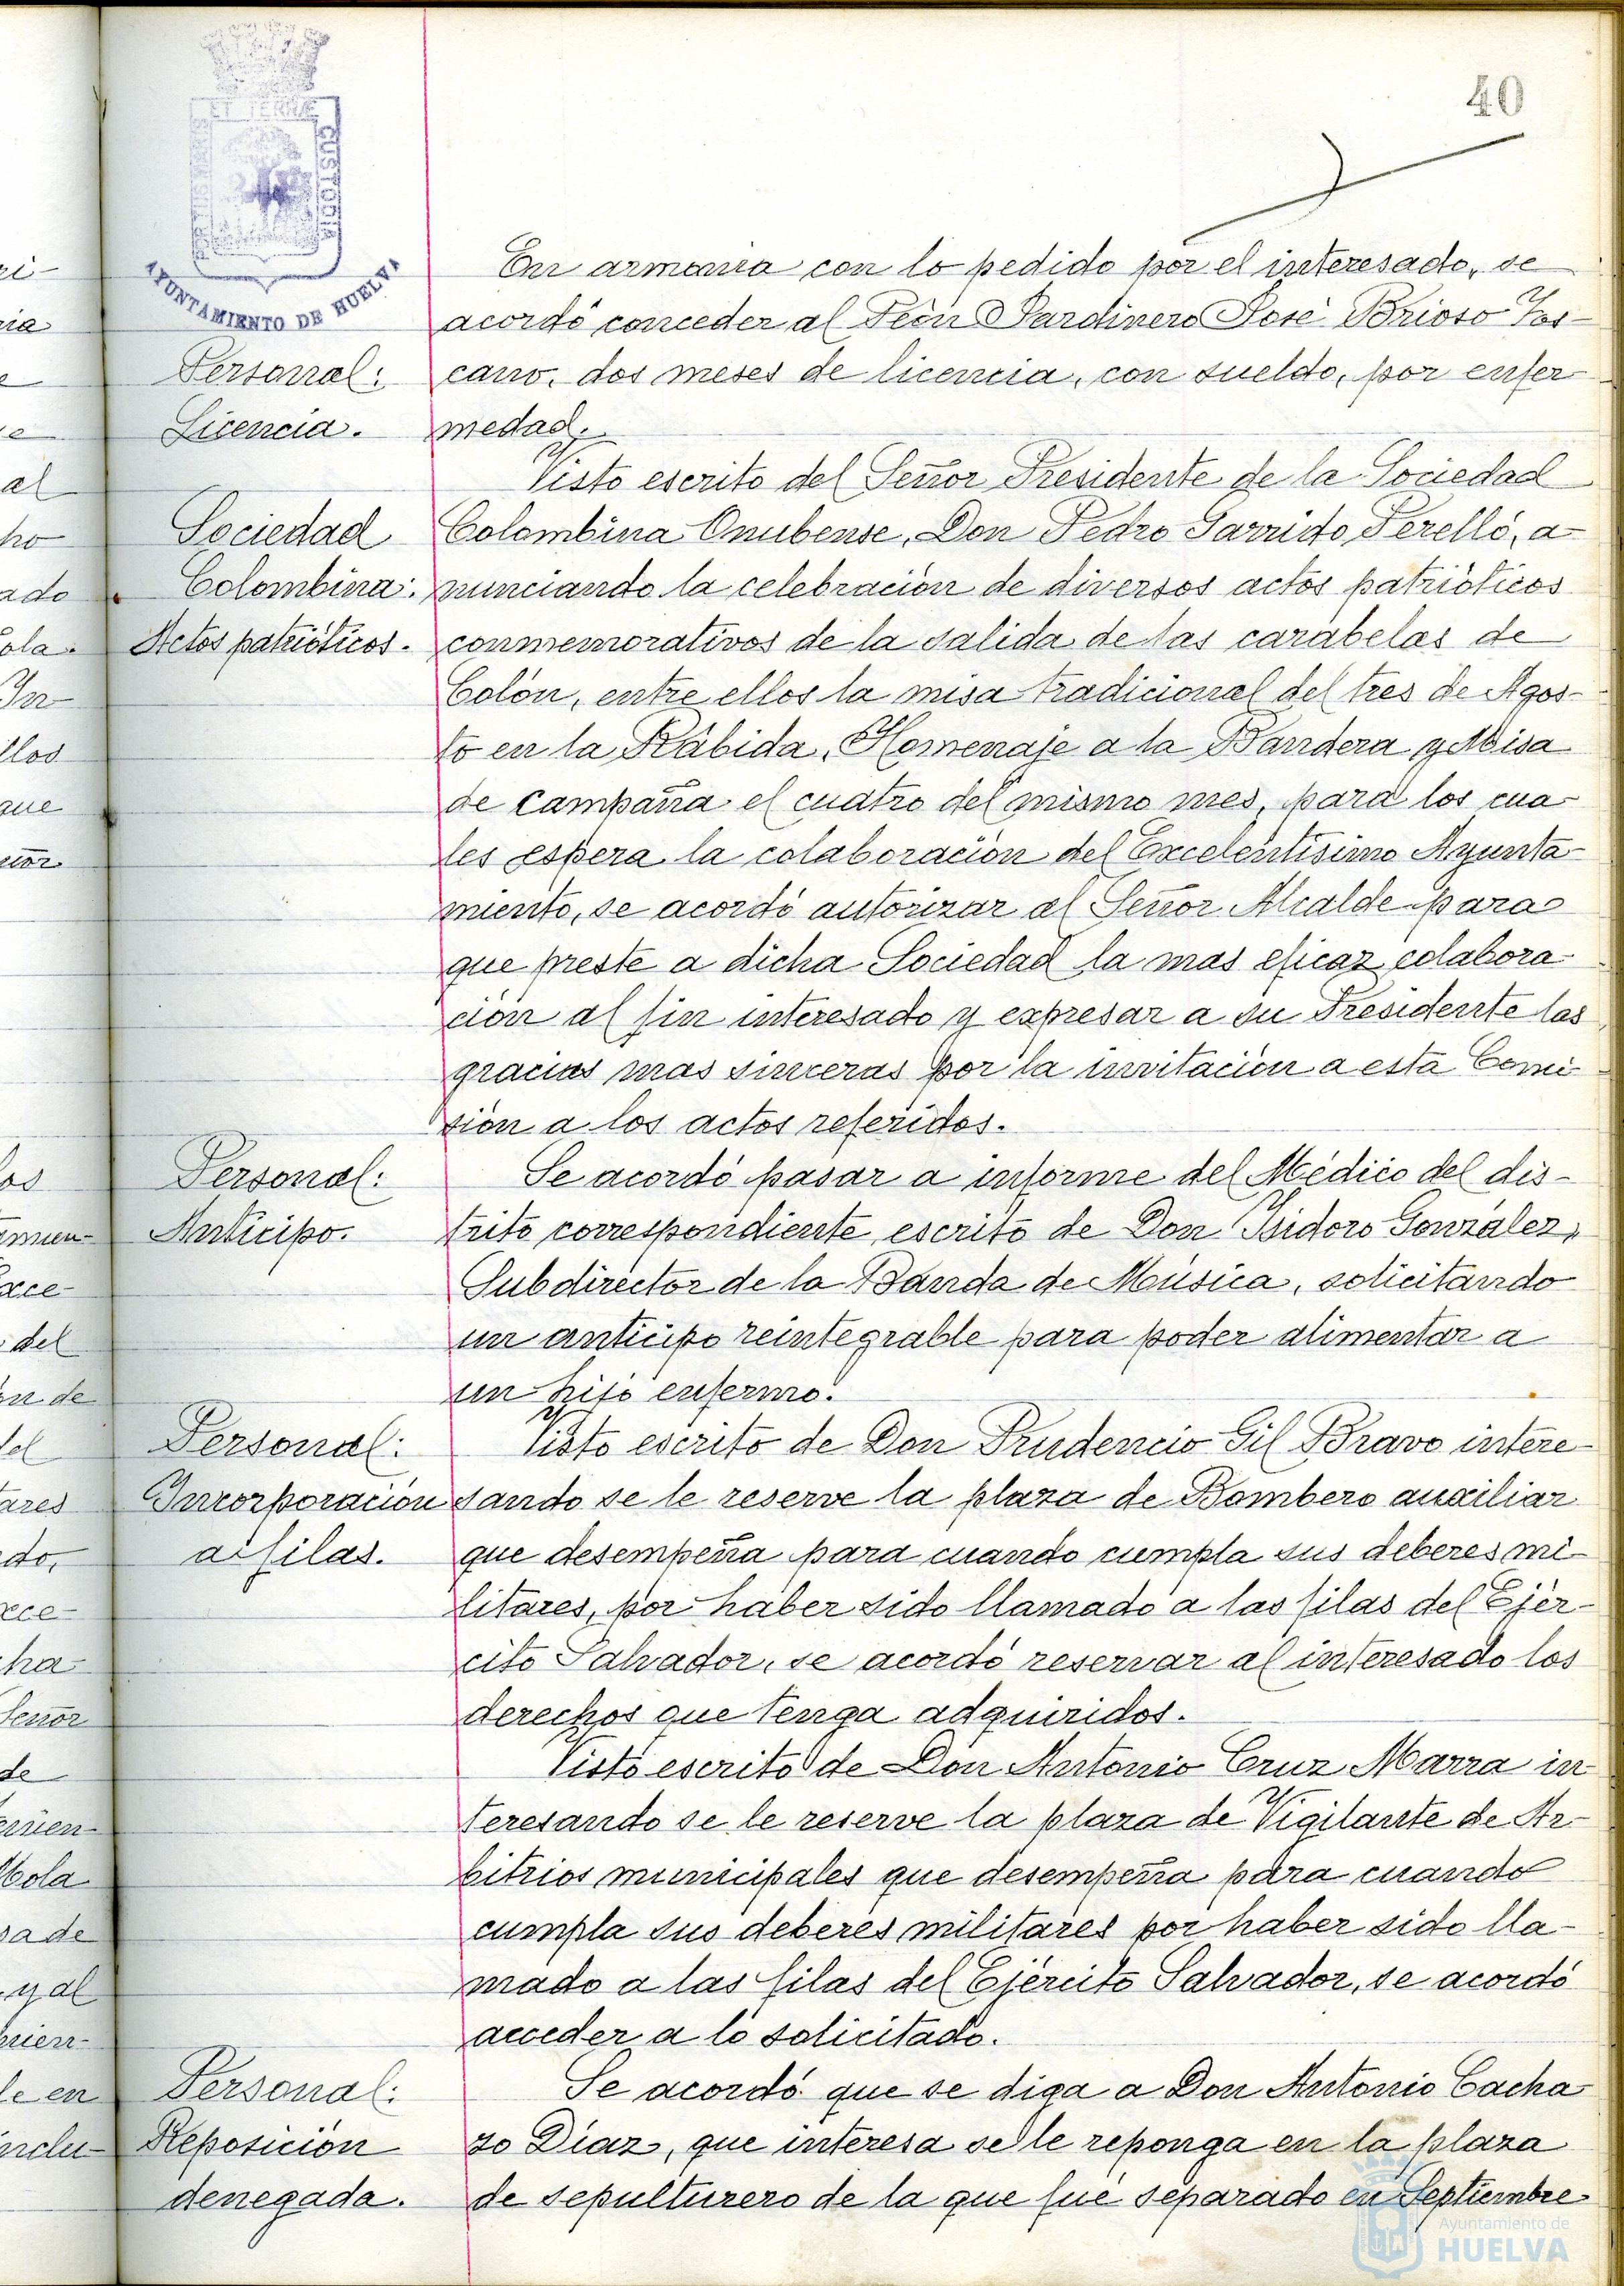 40
ET TERRÆ
CUSTODIA
AYUNTAMIENTO DE HUELVA
Personal:
Licencia.
En armonia con lo pedido por el interesado, se
acordó conceder al Peón Jardinero José Brioso Tos-
cano, dos meses de licencia, con sueldo, por enfer
medad.
Sociedad
Colombina:
Actos patrióticos.
Visto escrito del Señor Presidente de la Sociedad
Colombina Onubense, Don Pedro Garrido Perelló, a
nunciando la celebración de diversos actos patrióticos
conmemorativos de la salida de las carabelas de
Colón, entre ellos la misa tradicional del tres de Agos-
to en la Rábida, Homenaje a la Bandera y Misa
de campaña el cuatro del mismo mes, para los cua-
les espera la colaboración del Excelentísimo Ayunta-
miento, se acordó autorizar al Señor Alcalde para
que preste a dicha Sociedad la mas eficaz colabora-
ción al fin interesado y expresar a su Presidente las
gracias mas sinceras por la invitación a esta Comi-
sión a los actos referidos.
Personal:
Anticipo.
Se acordó pasar a informe del Médico del dis-
trito correspondiente, escrito de Don Isidoro González,
Subdirector de la Banda de Música, solicitando
un anticipo reintegrable para poder alimentar a
un hijo enfermo.
Personal:
Incorporación
a filas.
Visto escrito de Don Prudencio Gil Bravo intere-
sando se le reserve la plaza de Bombero auxiliar
que desempeña para cuando cumpla sus deberes mi-
litares, por haber sido llamado a las filas del Ejér-
cito Salvador, se acordó reservar al interesado los
derechos que tenga adquiridos.
Visto escrito de Don Antonio Cruz Marra in-
teresando se le reserve la plaza de Vigilante de Ar-
bitrios municipales que desempeña para cuando
cumpla sus deberes militares por haber sido lla-
mado a las filas del Ejército Salvador, se acordó
acceder a lo solicitado.
Personal:
Reposición
denegada.
Se acordó que se diga a Don Antonio Cacha
zo Díaz, que interesa se le reponga en la plaza
de sepulturero de la que fué separado en Septiembre
Ayuntamiento de
HUELVA